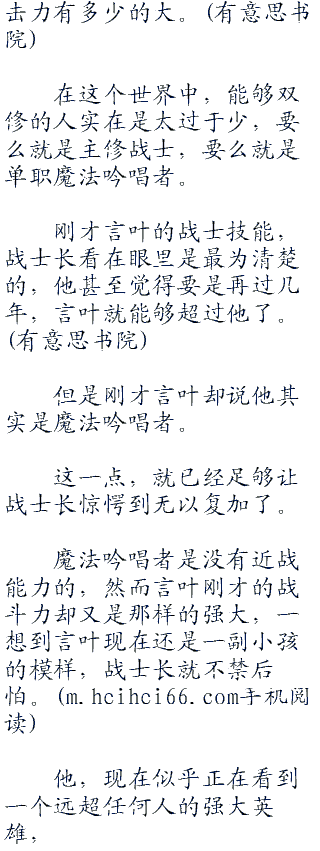 击力有多少的大。(有意思书
院)
在这个世界中，能够双
修的人实在是太过于少，要
么就是主修战士，要么就是
单职魔法吟唱者。
刚才言叶的战士技能，
战士长看在眼里是最为清楚
的，他甚至觉得要是再过几
年，言叶就能够超过他了。
(有意思书院)
但是刚才言叶却说他其
实是魔法吟唱者。
这一点，就已经足够让
战士长惊愕到无以复加了。
魔法吟唱者是没有近战
能力的，然而言叶刚才的战
斗力却又是那样的强大，一
想到言叶现在还是一副小孩
的模样，战士长就不禁后
怕。(m.hcihci66.com手机阅
读)
他，现在似乎正在看到
一个远超任何人的强大英
雄，